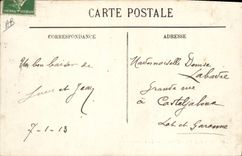 CARTE POSTALE
CORRESPONDANCE
ADRESSE
Un bon baiser de
et Jean
7-1-13
Mademoiselle Denise
Labadie
Grande rue
à Casteljaloux
Lot et Garonne